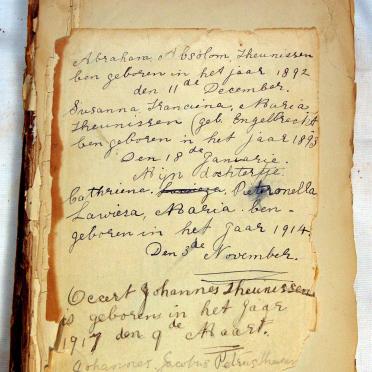 Abraham Absolom Theunissen
ben geboren in het jaar 1892
den 11de December.
Susanna Francina Maria
Theunissen (geb Engelbrecht
ben geboren in het jaar 1893
Den 18de Januarie.
Mijn dochtertje
Cathriena Pieteronella
Lawieza, Maria ben
geboren in het jaar 1914
Den 3de November.
Occert Johannes Theunissen
is geborens in het Jaar
1917 den 9de Maart.
Johannes Jacobus Petrus